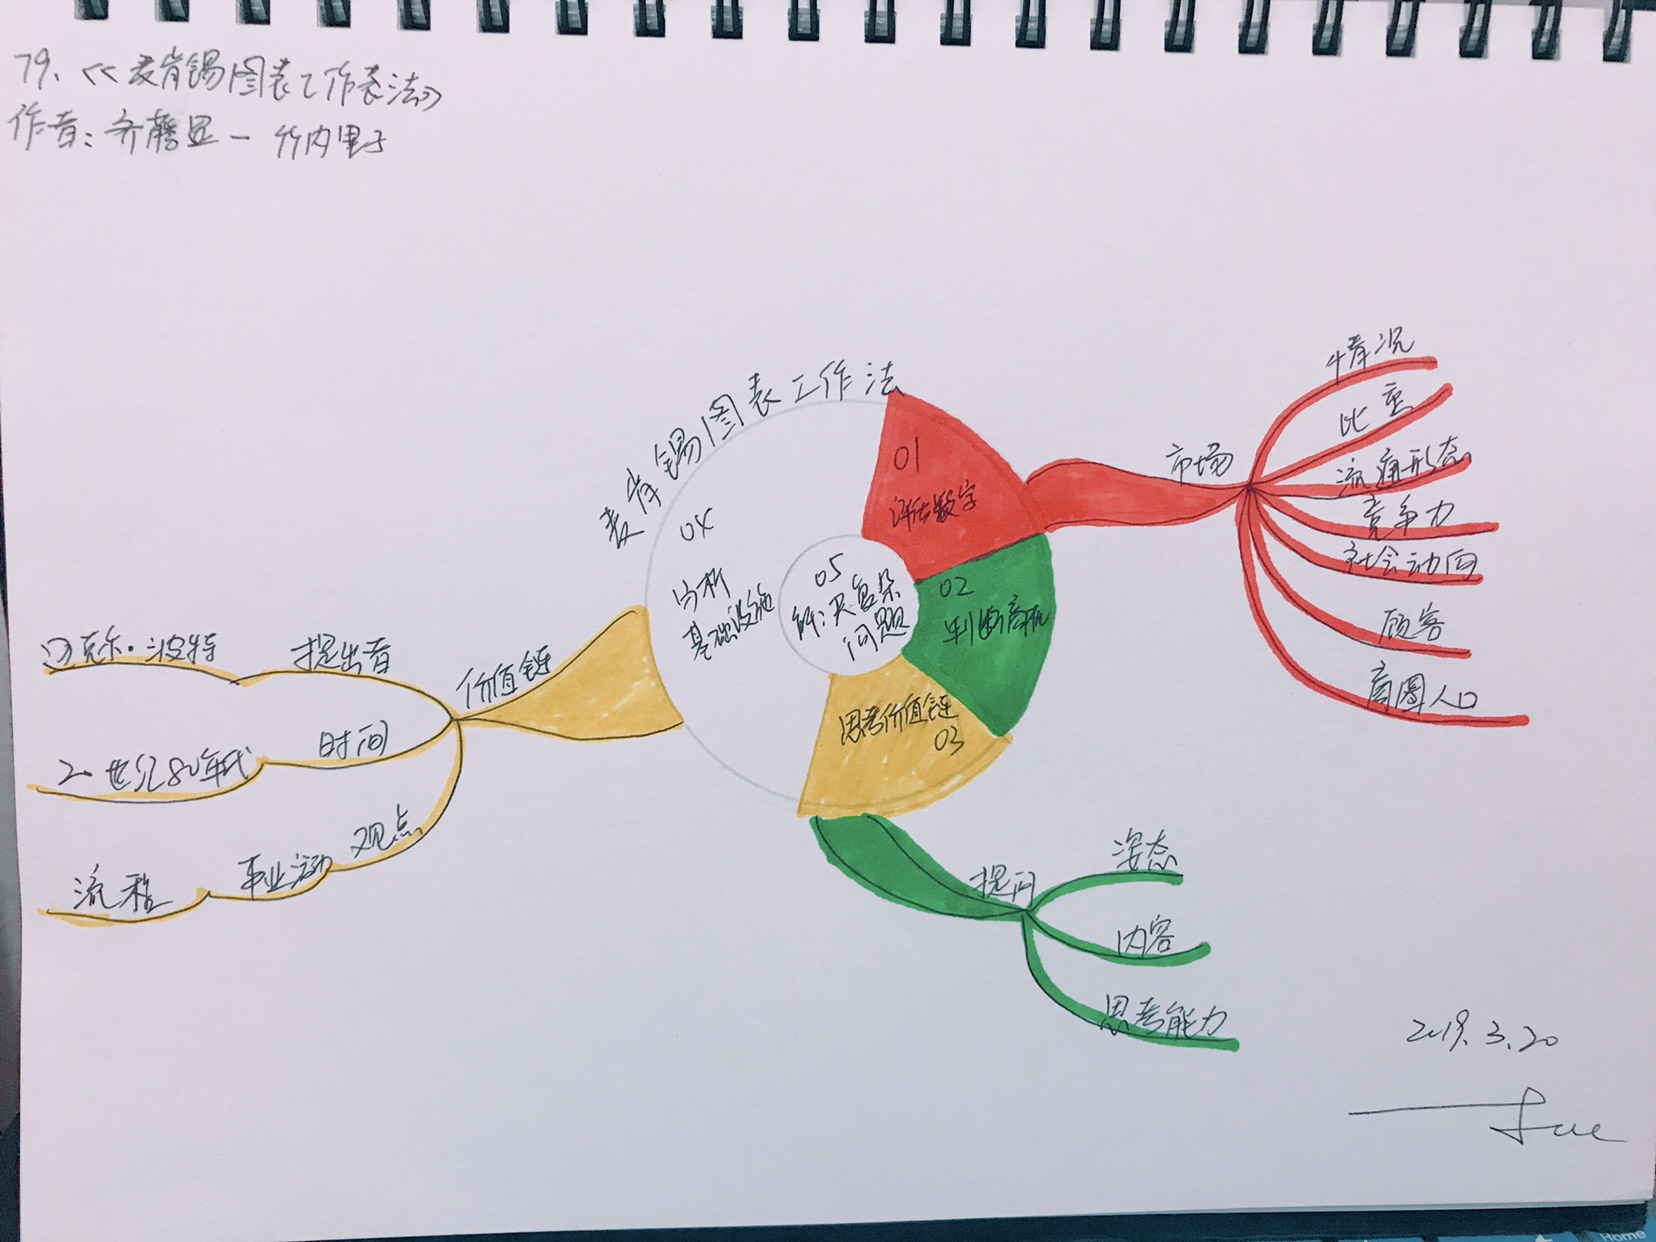 79、《麦肯锡图表工作表法》
作者：齐藤显一 竹内里子
麦肯锡图表工作法
01
评估数字
02
判断商机
思考价值链
03
04
分析
基础设施
05
解决复杂
问题
市场
情况
比重
流通形态
竞争力
社会动向
顾客
商圈人口
提问
姿态
内容
思考能力
价值链
提出者
迈克尔·波特
时间
20世纪80年代
观点
事业活动
流程
2019.3.20
Sue
Home